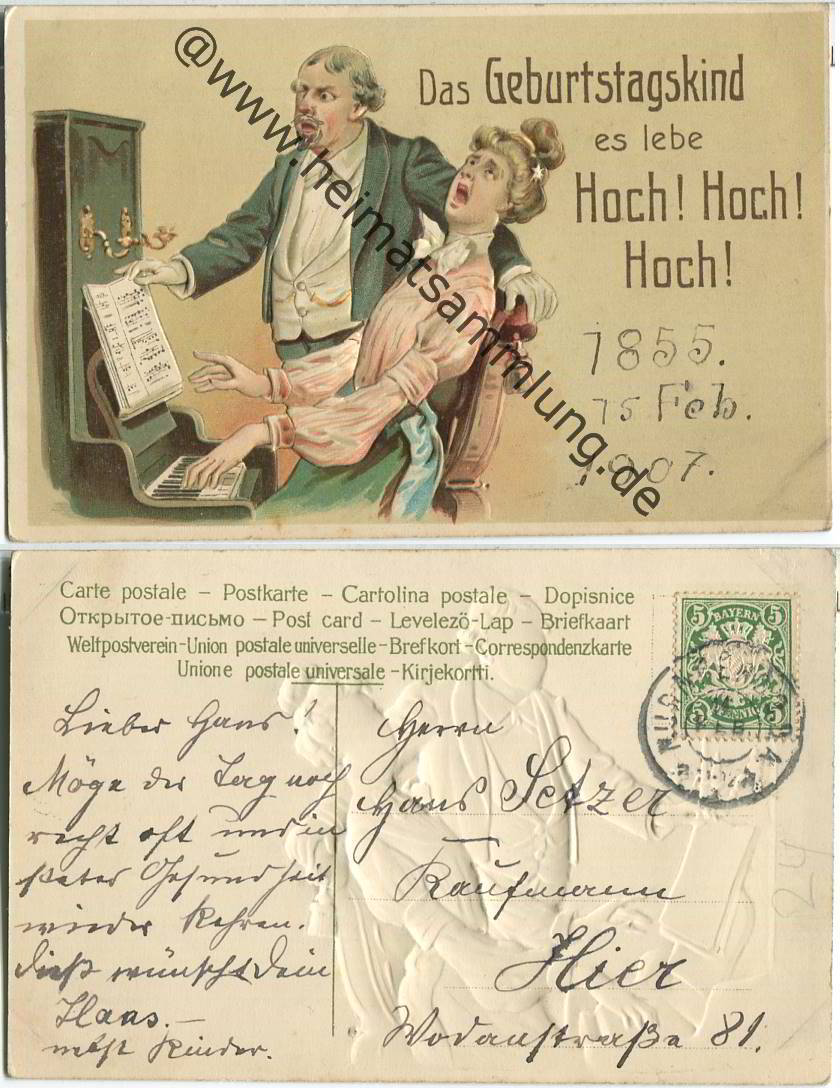 @www.heimatsammlung.de
Das Geburtstagskind
es lebe
Hoch! Hoch!
Hoch!
1855.
15 Feb.
1907.
Carte postale – Postkarte – Cartolina postale – Dopisnice
Открытое-письмо – Post card – Levelező-Lap – Briefkaart
Weltpostverein-Union postale universelle-Brefkort-Correspondenzkarte
Unione postale universale-Kirjekortti.
BAYERN
5 5
PFENNIG
5 5
Lieber Hans!
Möge der Tag noch
recht oft und in
steter Gesundheit
wieder kehren.
Dieß wünscht Dein
Haas.–
nebst Kinder.
Herrn
Hans Setzer
Kaufmann
Hier
Wodanstraße 81.
24